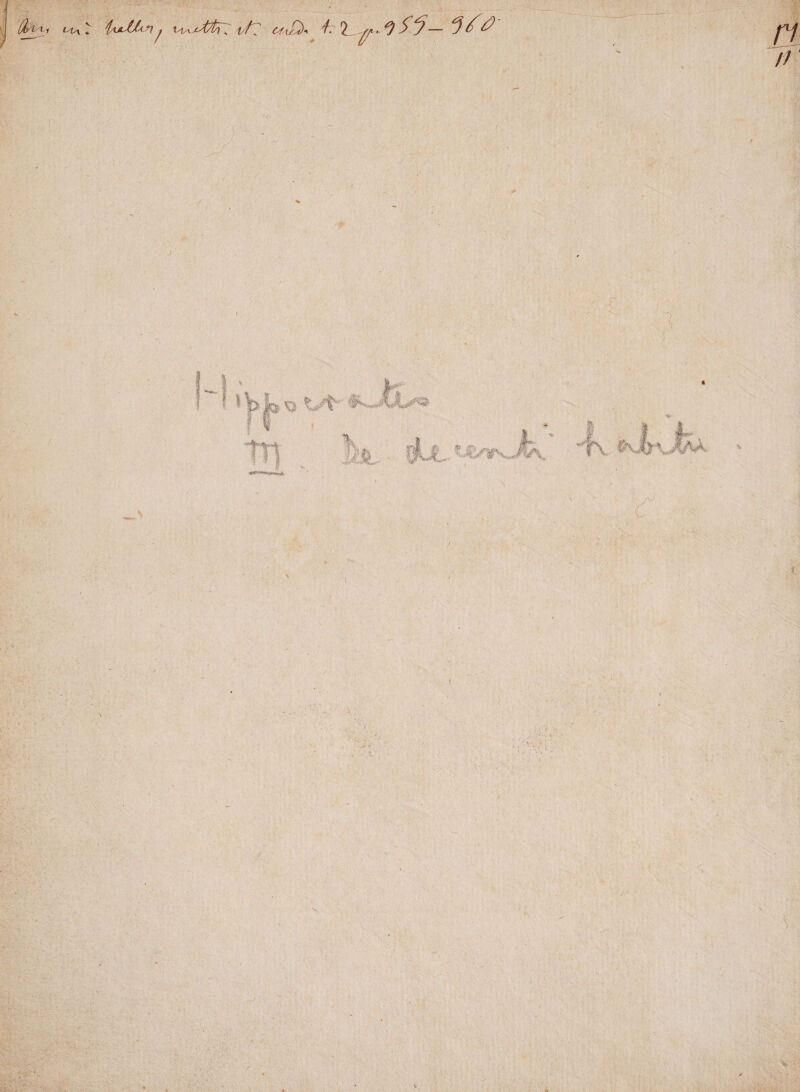 in: haller, meth. st. med. t. 2 p. 959–960
Hippocrates
III. De decenti habitu.